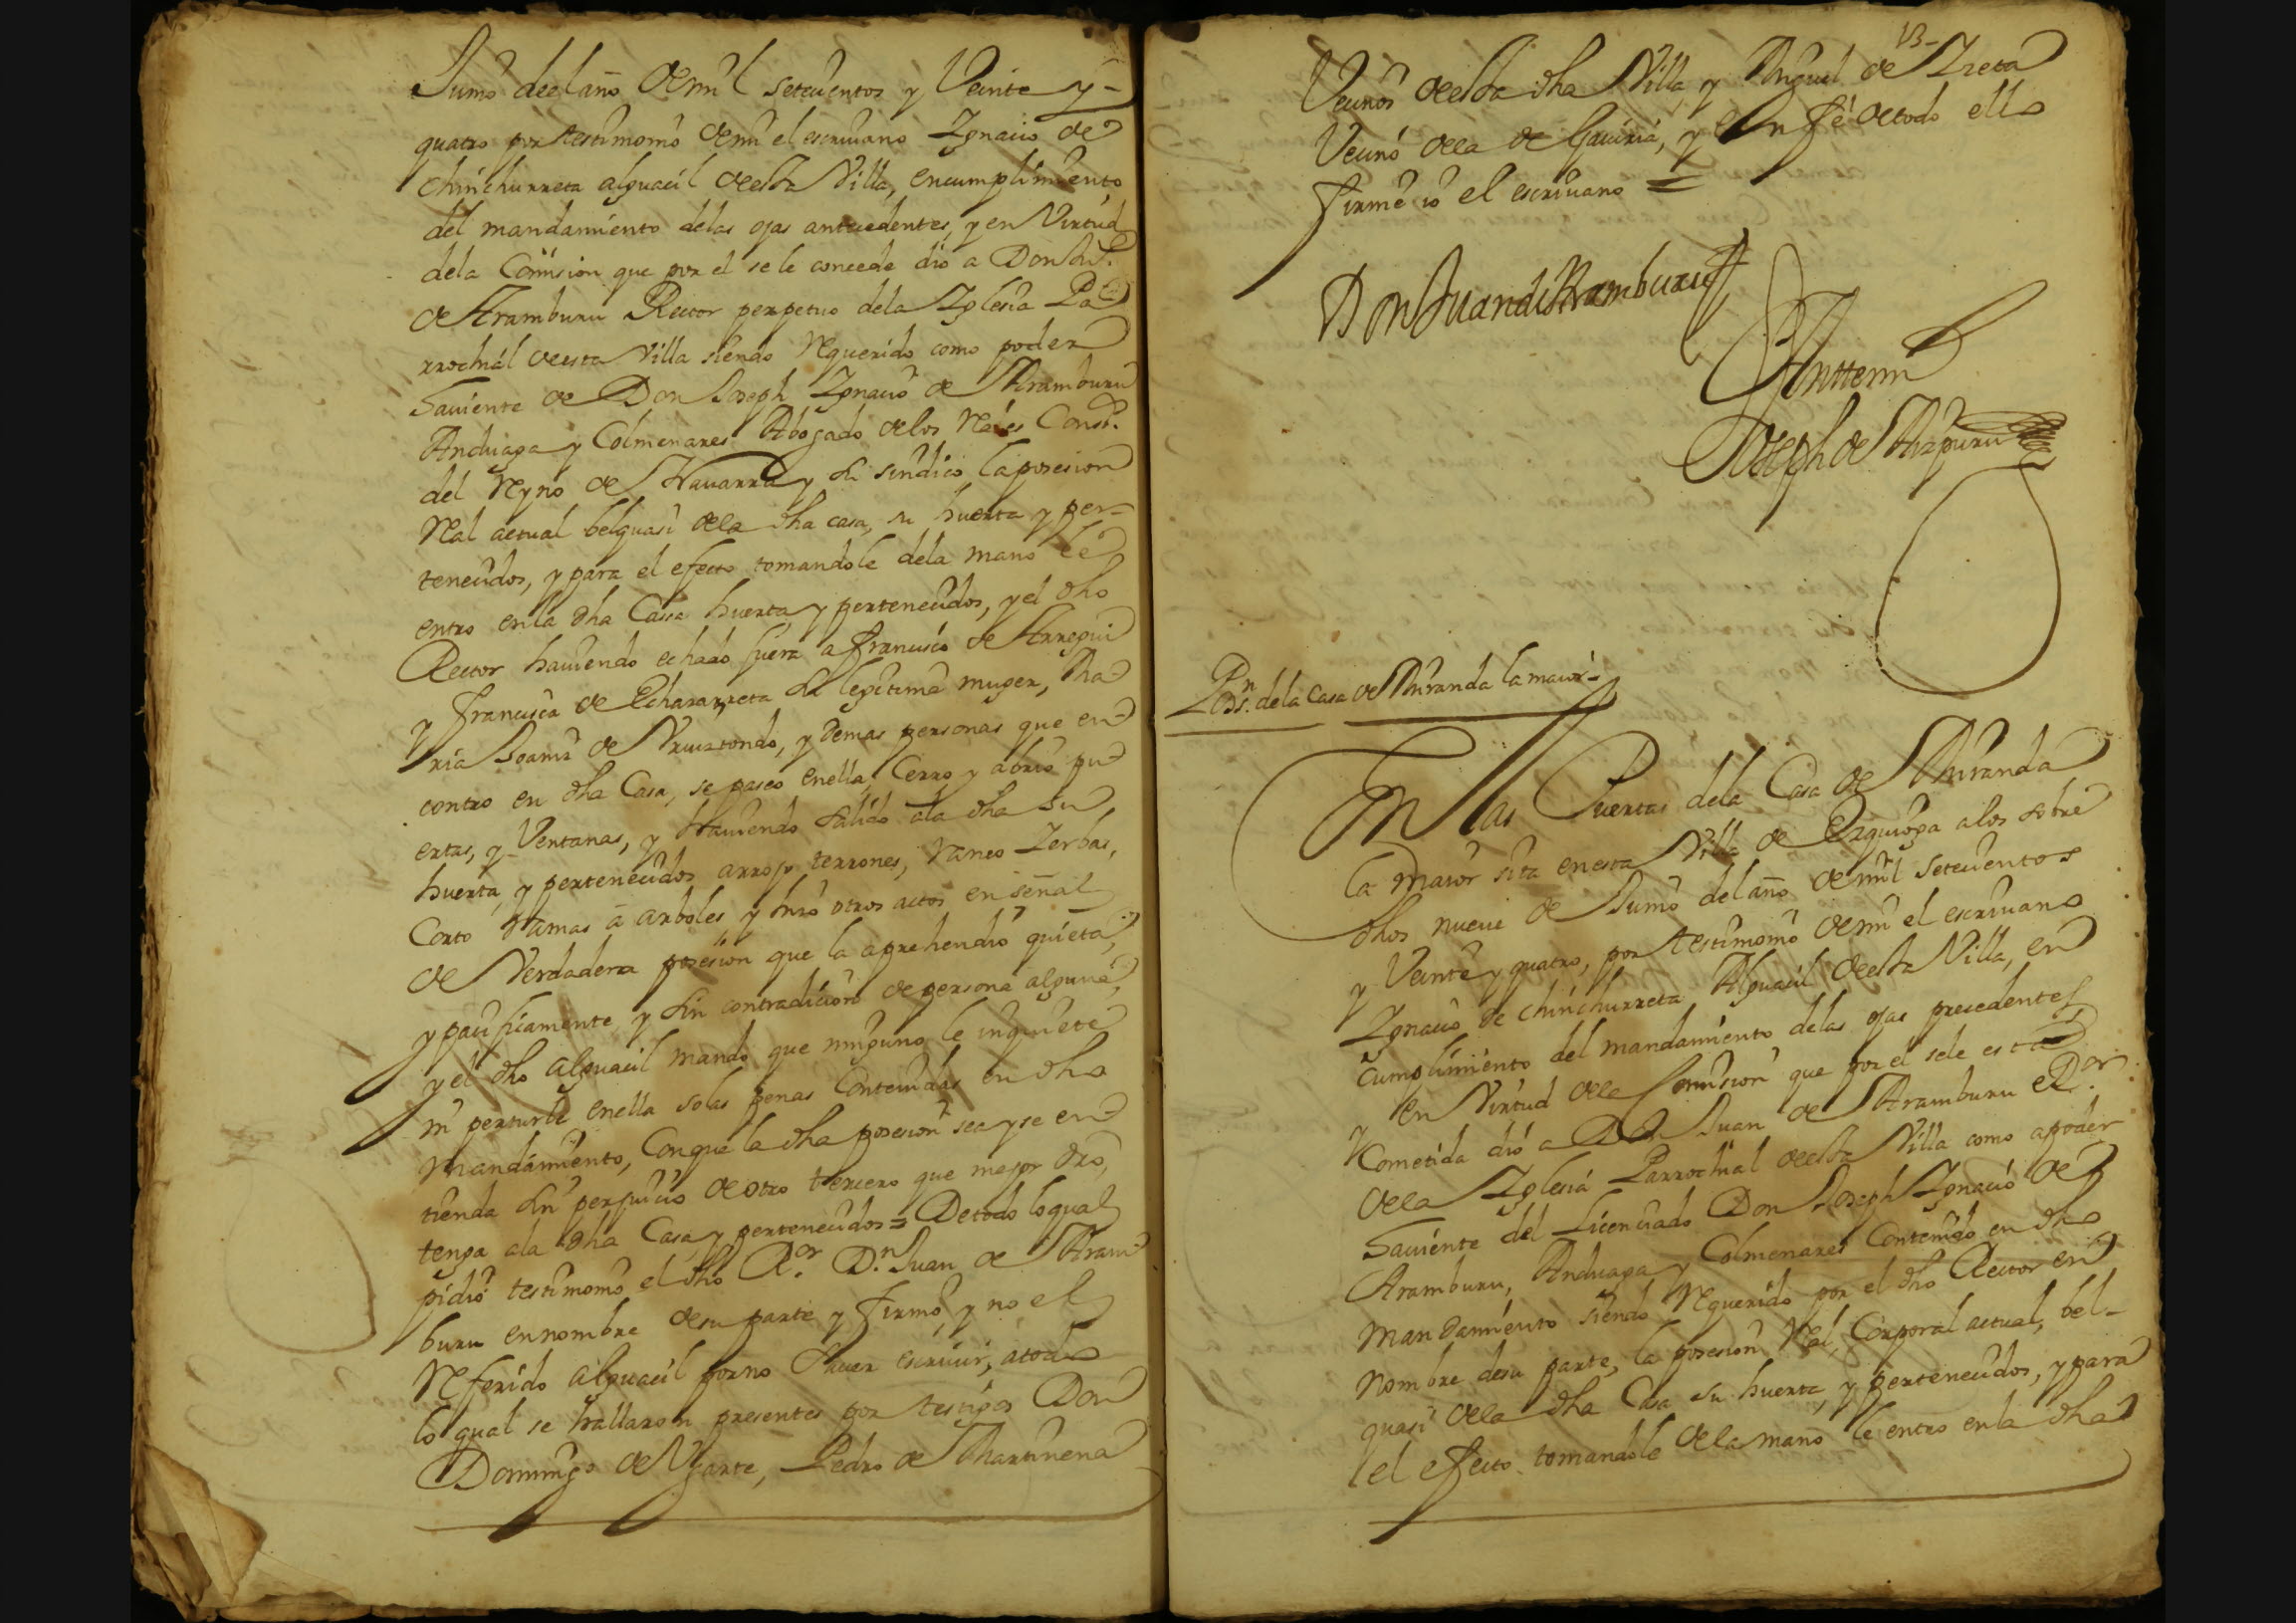 Junio deel año de mil setecientos y Veinte y -
quatro por testimonio de mi el escriuano Ignacio de
chinchurreta alguacil de esta Villa, encumplimiento
del mandamiento delas ojas antecedentes, y en Virtud
dela Comision que por el se le concede dio a Don Ju.
de Aramburu Rector perpetuo dela Iglesia Pa
rrochial de esta Villa siendo Requerido como poder
hauiente de Don Joseph Ignacio de Aramburu
Anduaga y Colmenares Abogado delos Reales Cons.
del Reyno de Nauarra y su sindico, la posesion
Real actual belquasi dela dha casa, su huerta y per-
tenecidos, y para el efecto tomandole dela mano le
entro en la dha Cassa huerta y pertenecidos, y el dho
Rector hauiendo echado fuera a Francisco de Arregui
y Francisca de Echararreta su legitima muger, Ma
ria Joanis de Vruiztondo, y demas personas que en
contro en dha Casa, se paseo enella, Cerro y abrio pu
ertas, y Ventanas, y Hauiendo salido ala dha su
huerta, y pertenecidos arrojo terrones, Ranco Yerbas,
Corto Ramas a arboles, y hizo otros actos en señal
de Verdadera posesion que la aprehendio quieta,
y pacificamente, y sin contradicion de persona alguna,
y el dho alguacil mando que ninguno le inquiete
ni perturbe enella solas penas Contenidas en dho
Mandamiento, Conque la dha posesion sea y se en
tienda sin perjuicio de otro tercero que mejor dro,
tenga ala dha Casa, y pertenecidos = De todo loqual
pidio testimonio el dho R.or D.n Juan de Aram
buru en nombre de su parte y firmo, y no el
Referido alguacil por no Sauer escriuir, atodo
lo qual se hallaron presentes por testigos Don
Domingo de Vgarte, Pedro de Martinena
13-
Vecinos de esta dha Villa, y Miguel de Izeta
Vecino dela de Gauiria, y En Fe de todo ello
firme io el escriuano =
Don Juan de Aramburu
Antemi
Joseph de Aizpuru
Pos.n dela Casa de Miranda la maior -
En las Puertas dela Casa de Miranda
la Maior sita en esta Villa de Ezquioga alos sobre
dhos nueue de Junio del año de mil setecientos
y Veinte y quatro, por testimonio de mi el escriuano
Ignacio de chinchurreta Alguacil de esta Villa, en
cumplimiento del mandamiento delas ojas precedentes,
y en Virtud dela Comision que por el sele esta
Cometida dio a Don Juan de Aramburu R.or
dela Iglesia Parrochial de esta Villa como apoder
hauiente del Licenciado Don Joseph Ignacio de
Aramburu, Anduaga y Colmenares Contenido en dho
Mandamiento siendo Requerido por el dho Rector en
nombre desu parte, la posesion Real, Corporal actual, bel-
quasi dela dha Casa su huerta, y pertenecidos, y para
el efecto tomandole dela mano le entro en la dha